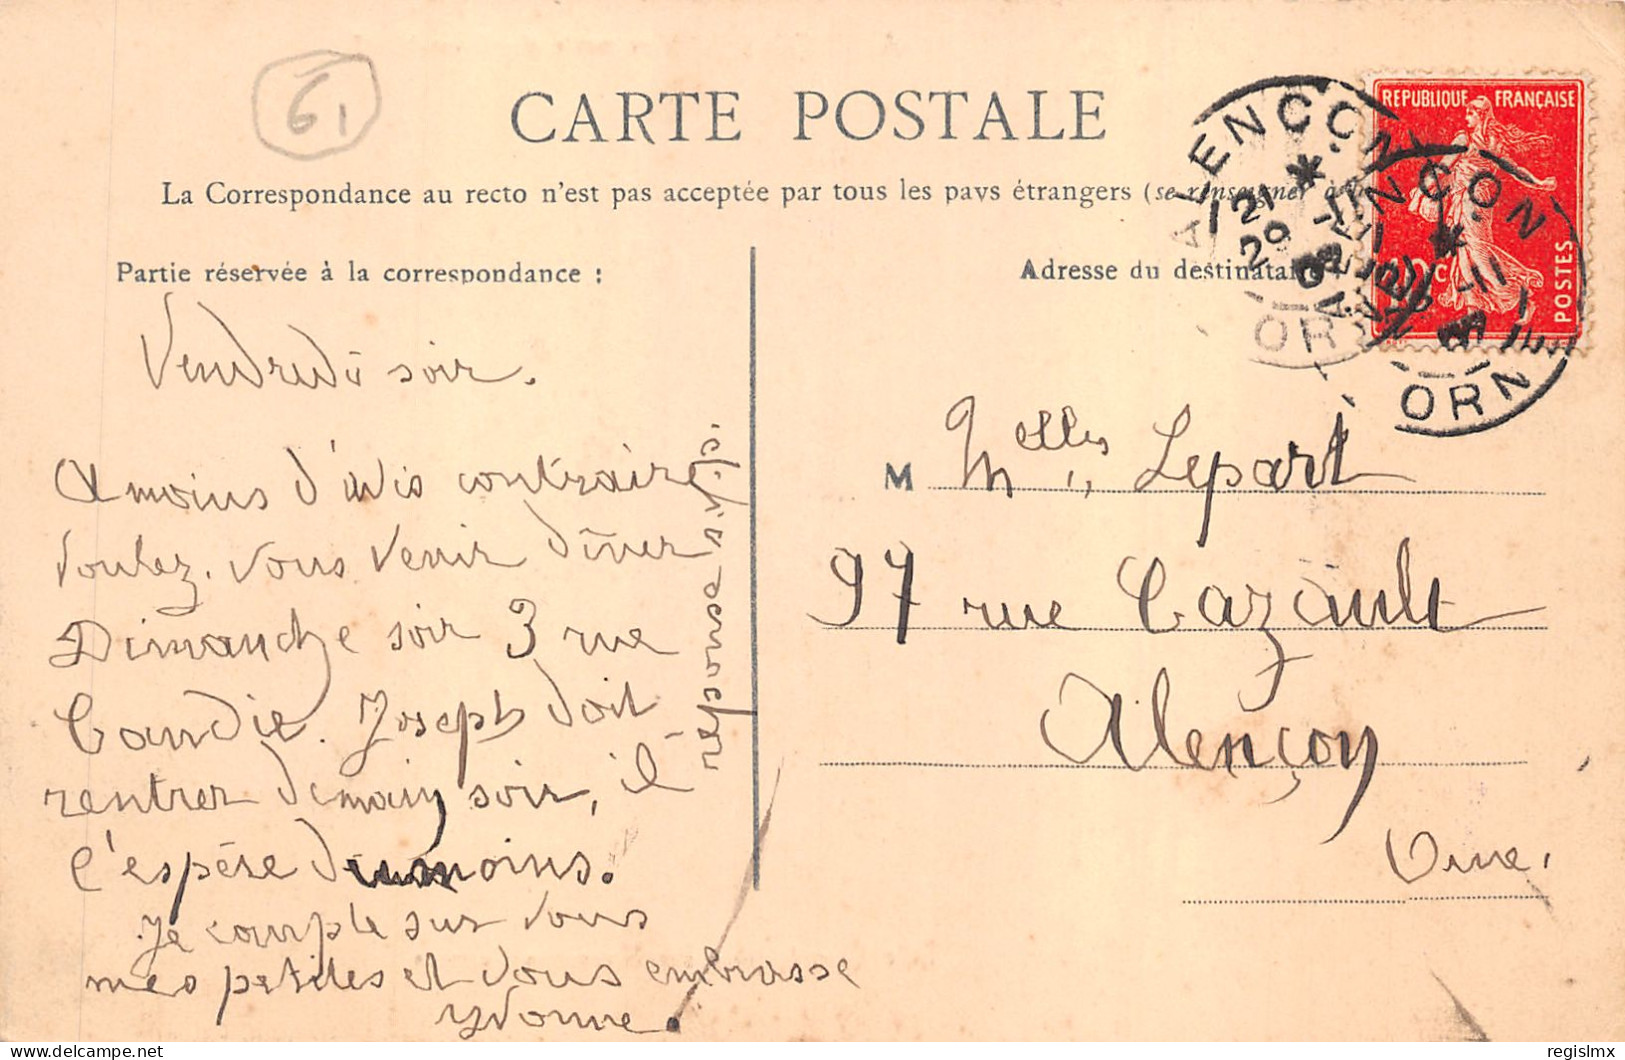 61
CARTE POSTALE
La Correspondance au recto n'est pas acceptée par tous les pays étrangers (se renseigner à
Partie réservée à la correspondance :
Vendredi soir.
A moins d'avis contraire
voulez-vous venir dîner
Dimanche soir 3 rue
Candie. Joseph doit
rentrer demain soir, il
l'espère du moins.
Je compte sur vous
mes petites et vous embrasse
Yvonne.
réponse s.v.p.
Adresse du destinataire
M Melles Lepart
97 rue Cazault
Alençon
Orne.
REPUBLIQUE FRANÇAISE
10c
POSTES
ALENCON
21 *
29 -11
ORNE
ALENCON
*
-11
ORNE
regislmx